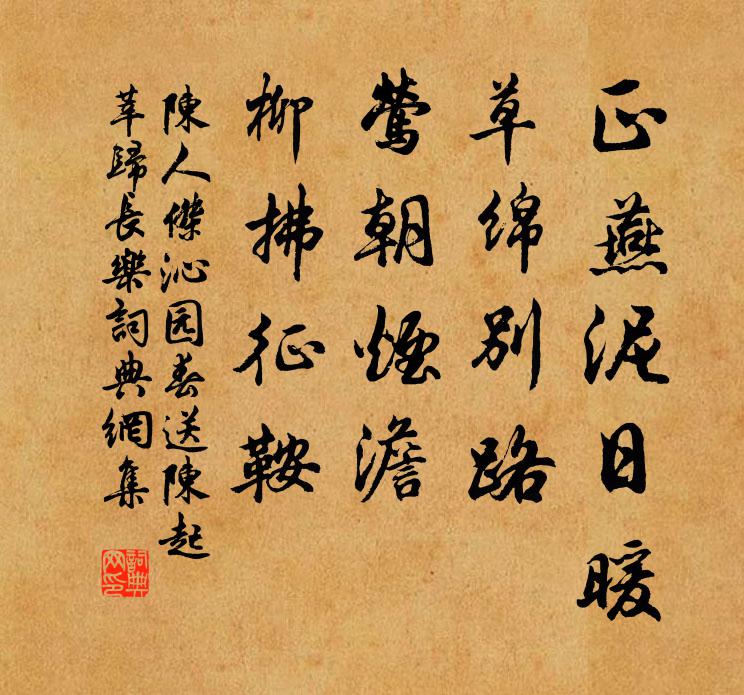 正燕泥日暖
草綿别路
鶯朝煙澹
柳拂征鞍
陳人傑沁园春送陳起
莘歸長樂詞典網集
詞典
网印